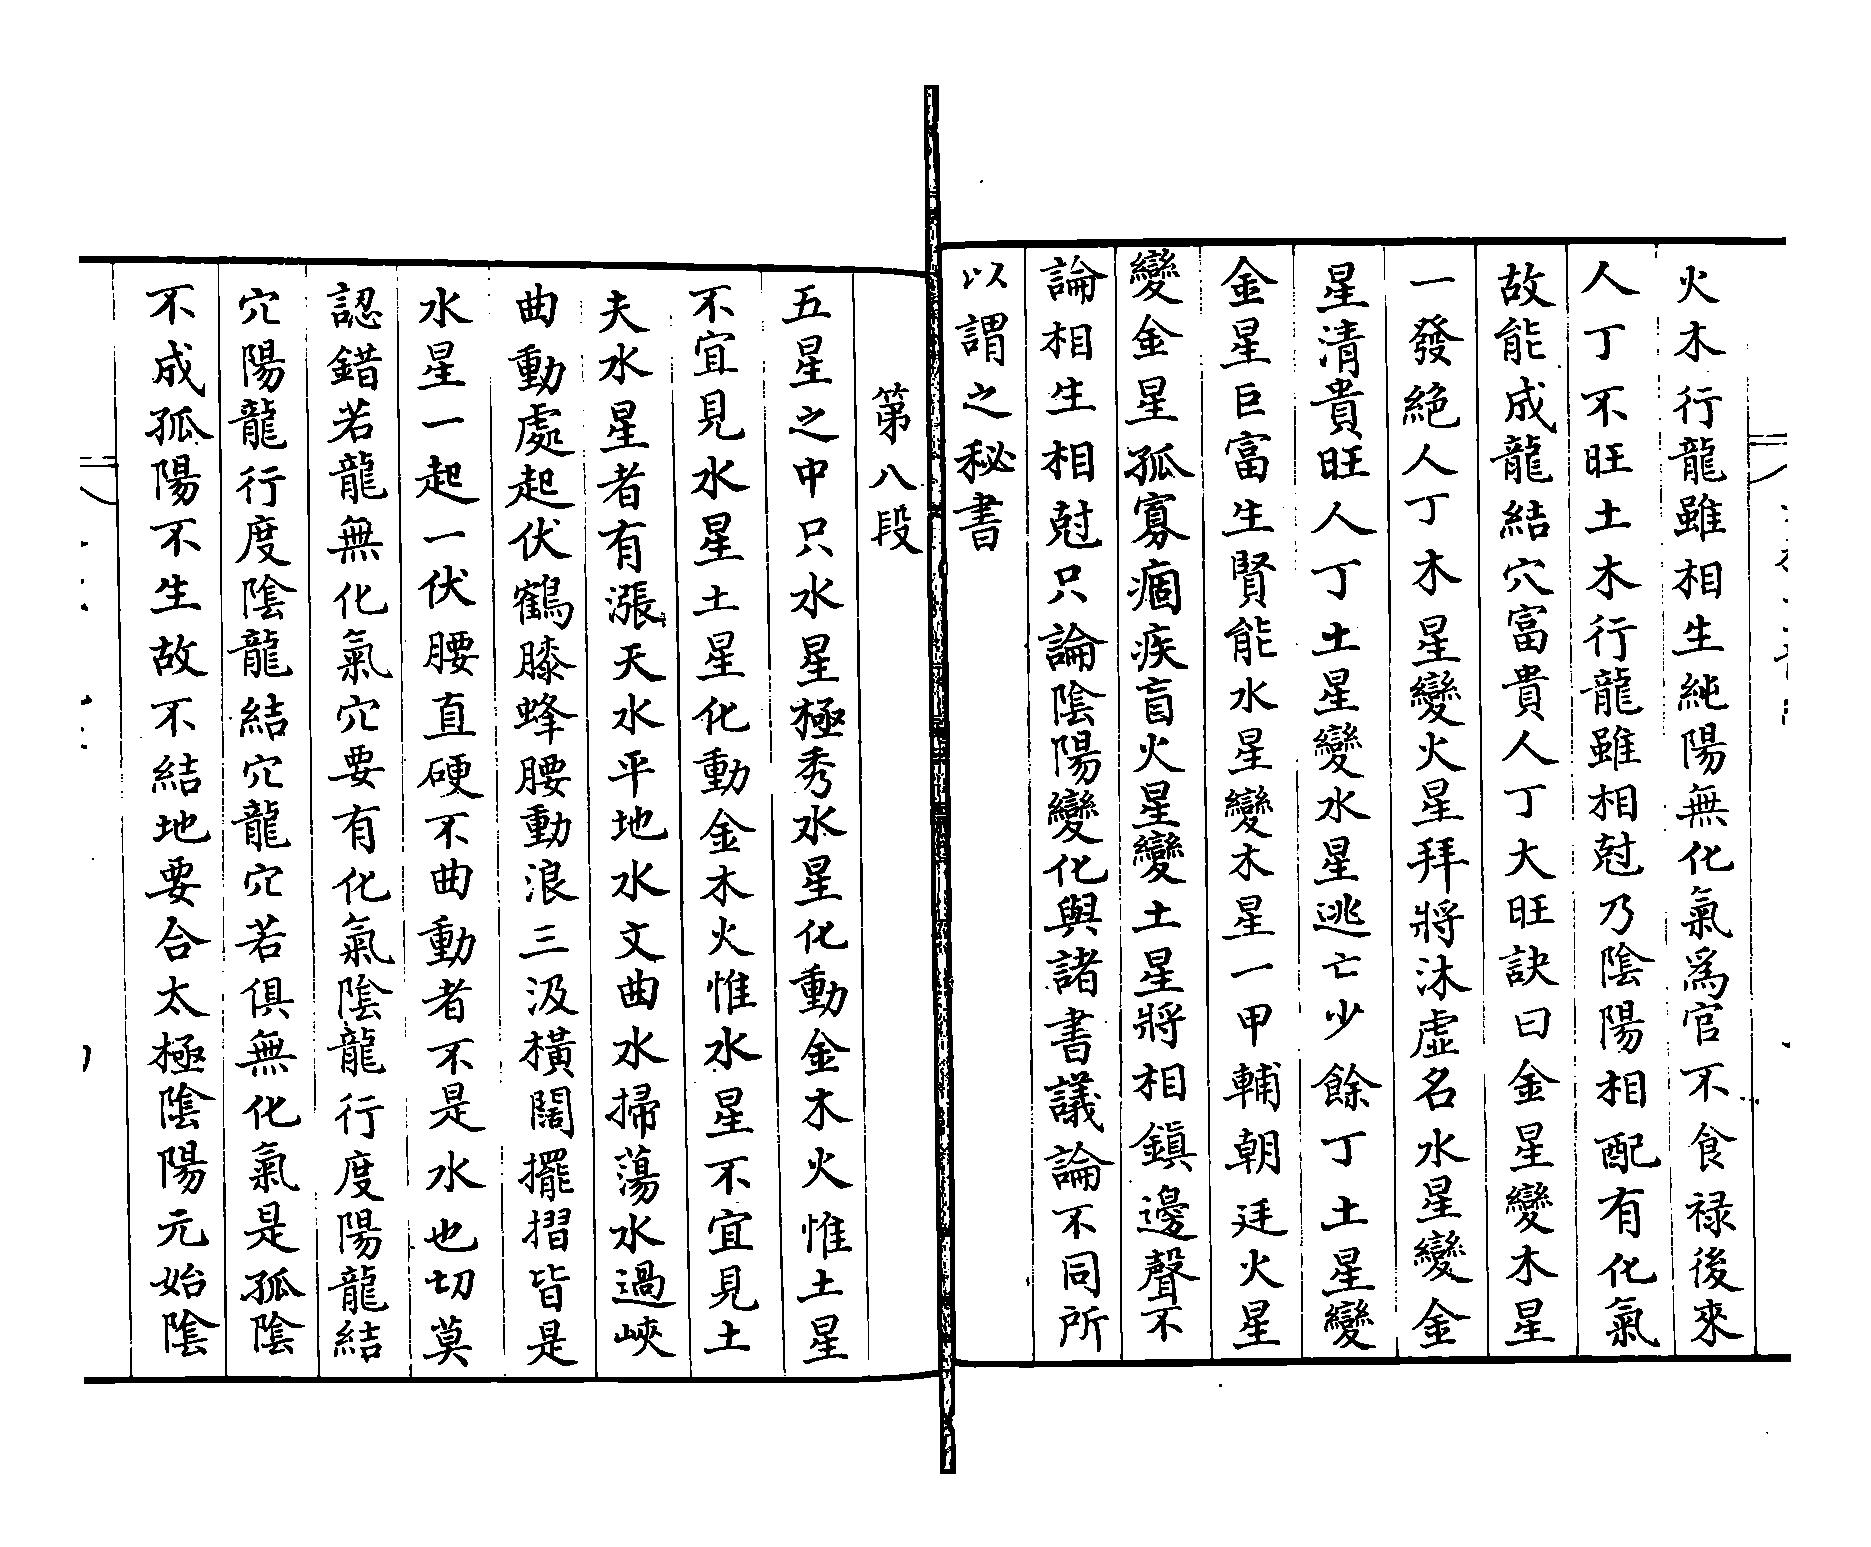 火木行龍雖相生純陽無化氣爲官不食禄後來
人丁不旺土木行龍雖相尅乃隂陽相配有化氣
故能成龍結穴富貴人丁大旺訣曰金星變木星
一發絕人丁木星變火星拜將沐虛名水星變金
星清貴旺人丁土星變水星逃亡少餘丁土星變
金星巨富生賢能水星變木星一甲輔朝廷火星
變金星孤寡痼疾盲火星變土星將相鎮邊聲不
論相生相尅只論隂陽變化與諸書議論不同所
以謂之秘書
第八段
五星之中只水星極秀水星化動金木火惟土星
不宜見水星土星化動金木火惟水星不宜見土
夫水星者有漲天水平地水文曲水掃蕩水過峽
曲動處起伏鶴膝蜂腰動浪三汲橫闊擺摺皆是
水星一起一伏腰直硬不曲動者不是水也切莫
認錯若龍無化氣穴要有化氣隂龍行度陽龍結
穴陽龍行度隂龍結穴龍穴若俱無化氣是孤隂
不成孤陽不生故不結地要合太極隂陽元始隂